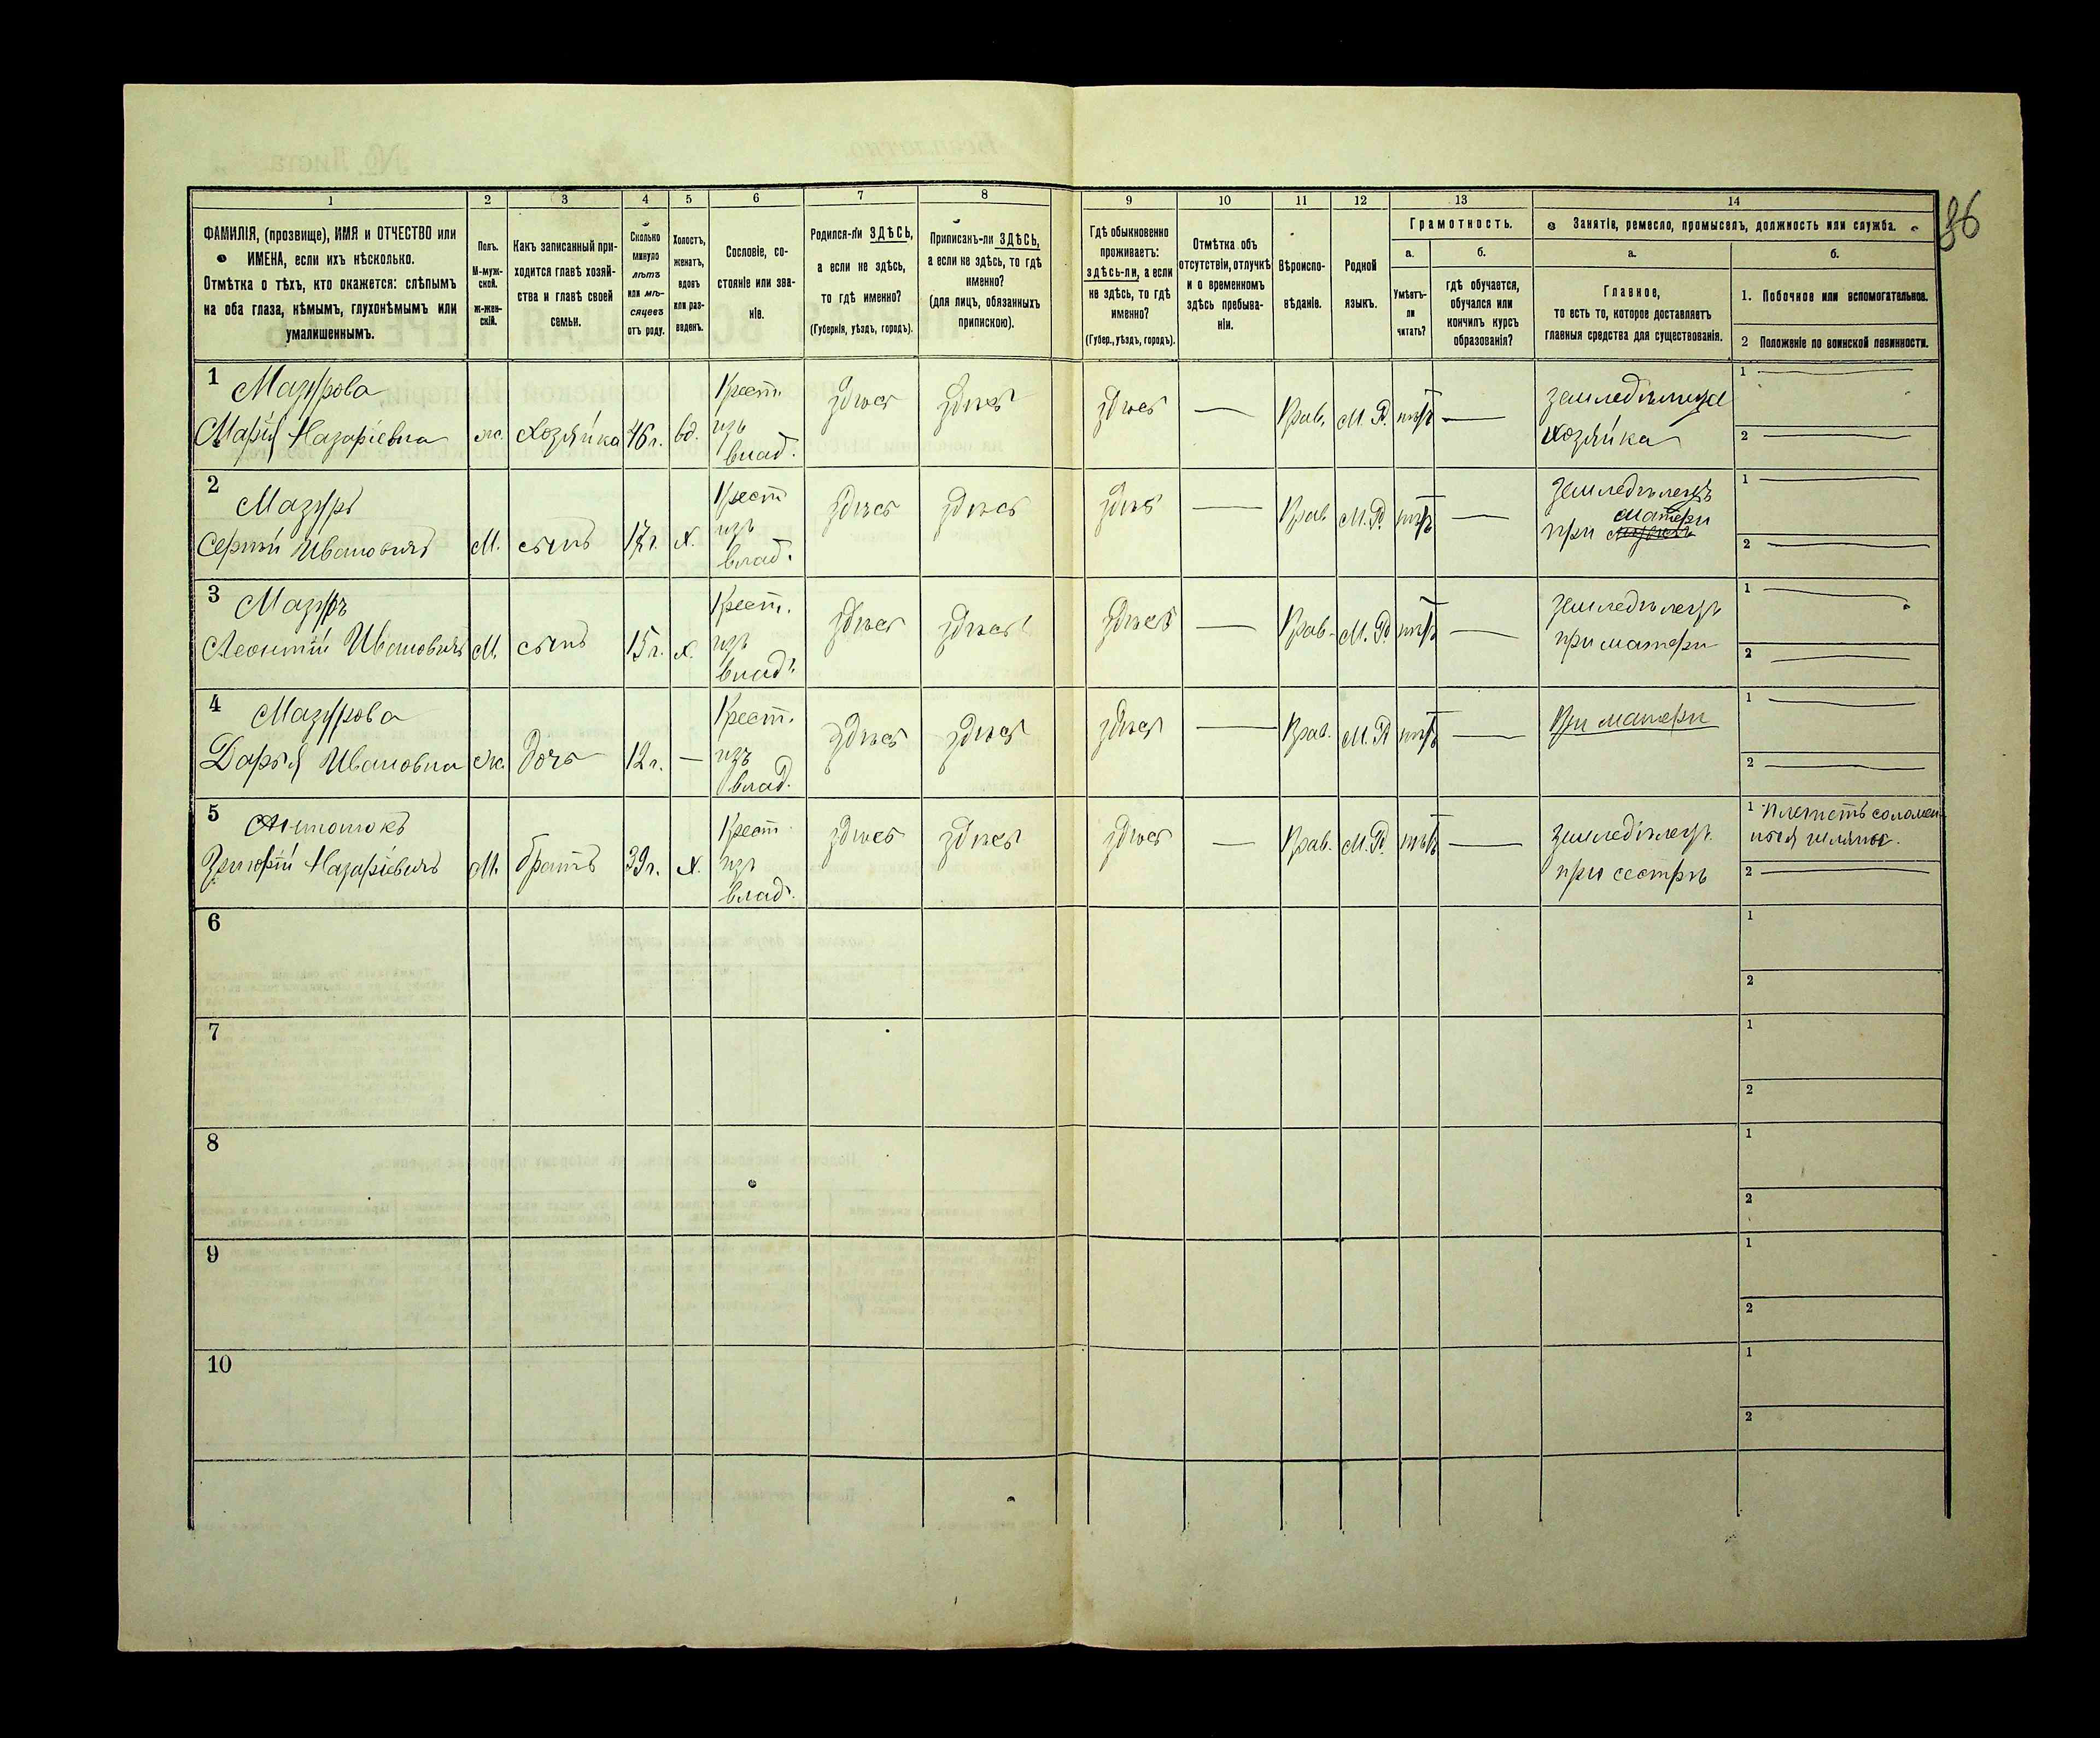 86
1 2 3 4 5 6 7 8 9 10 11 12 13 14
ФАМИЛІЯ, (прозвище), ИМЯ и ОТЧЕСТВО или
ИМЕНА, если ихъ нѣсколько.
Отмѣтка о тѣхъ, кто окажется: слѣпымъ
на оба глаза, нѣмымъ, глухонѣмымъ или
умалишеннымъ.
Полъ.
М-муж-
ской.
Ж-жен-
скій.
Какъ записанный при-
ходится главѣ хозяй-
ства и главѣ своей
семьи.
Сколько
минуло
лѣтъ
или мѣ-
сяцевъ
отъ роду.
Холостъ,
женатъ,
вдовъ
или раз-
веденъ.
Сословіе, со-
стояніе или зва-
ніе.
Родился-ли ЗДѢСЬ,
а если не здѣсь,
то гдѣ именно?
(Губернія, уѣздъ, городъ).
Приписанъ-ли ЗДѢСЬ,
а если не здѣсь, то гдѣ
именно?
(для лицъ, обязанныхъ
припискою).
Гдѣ обыкновенно
проживаетъ:
здѣсь-ли, а если
не здѣсь, то гдѣ
именно?
(Губер., уѣздъ, городъ).
Отмѣтка объ
отсутствіи, отлучкѣ
и о временномъ
здѣсь пребыва-
ніи.
Вѣроиспо-
вѣданіе.
Родной
языкъ.
Грамотность.
а.
Умѣетъ-
ли
читать?
б.
гдѣ обучается,
обучался или
кончилъ курсъ
образованія?
Занятіе, ремесло, промыселъ, должность или служба.
а.
Главное,
то есть то, которое доставляетъ
главныя средства для существованія.
б.
1. Побочное или вспомогательное.
2 Положеніе по воинской повинности.
1 Мазурова
Марія Назаріевна ж. хозяйка 46 г. вд.
Крест.
изъ
влад.
здѣсь здѣсь здѣсь — Прав. М. Р. нѣтъ —
земледѣлица
хозяйка
1 —
2 —
2 Мазуръ
Сергѣй Ивановичъ М. сынъ 17 г. х.
Крест
изъ
влад.
здѣсь здѣсь здѣсь — Прав. М. Р. нѣтъ —
земледѣлецъ
матери
при
1 —
2 —
3 Мазуръ
Леонтій Ивановичъ М. сынъ 15 г. х.
Крест.
изъ
влад.
здѣсь здѣсь здѣсь — Прав. М. Р. нѣтъ —
земледѣлецъ
при матери
1 —
2 —
4 Мазурова
Дарья Ивановна ж. дочь 12 г. —
Крест.
изъ
влад.
здѣсь здѣсь здѣсь — Прав. М. Р. нѣтъ —
При матери
1 —
2 —
5 Антонюкъ
Назаріевичъ М. братъ 39 г. х.
Крест
изъ
влад.
здѣсь здѣсь здѣсь — Прав. М. Р. нѣтъ —
земледѣлецъ
при сестрѣ
1 Плететъ соломен-
ныя шляпы.
2 —
6 1
2
7 1
2
8 1
2
9 1
2
10 1
2